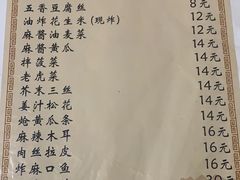 五香豆腐丝 8元
油炸花生米(现炸) 12元
麻酱油麦菜 12元
麻酱黄瓜 14元
拌菠菜 14元
老虎菜 14元
芥末三丝 14元
姜汁松花 14元
炝黄瓜条 14元
麻辣木耳 16元
肉丝拉皮 16元
炸麻口鱼 16元
20元